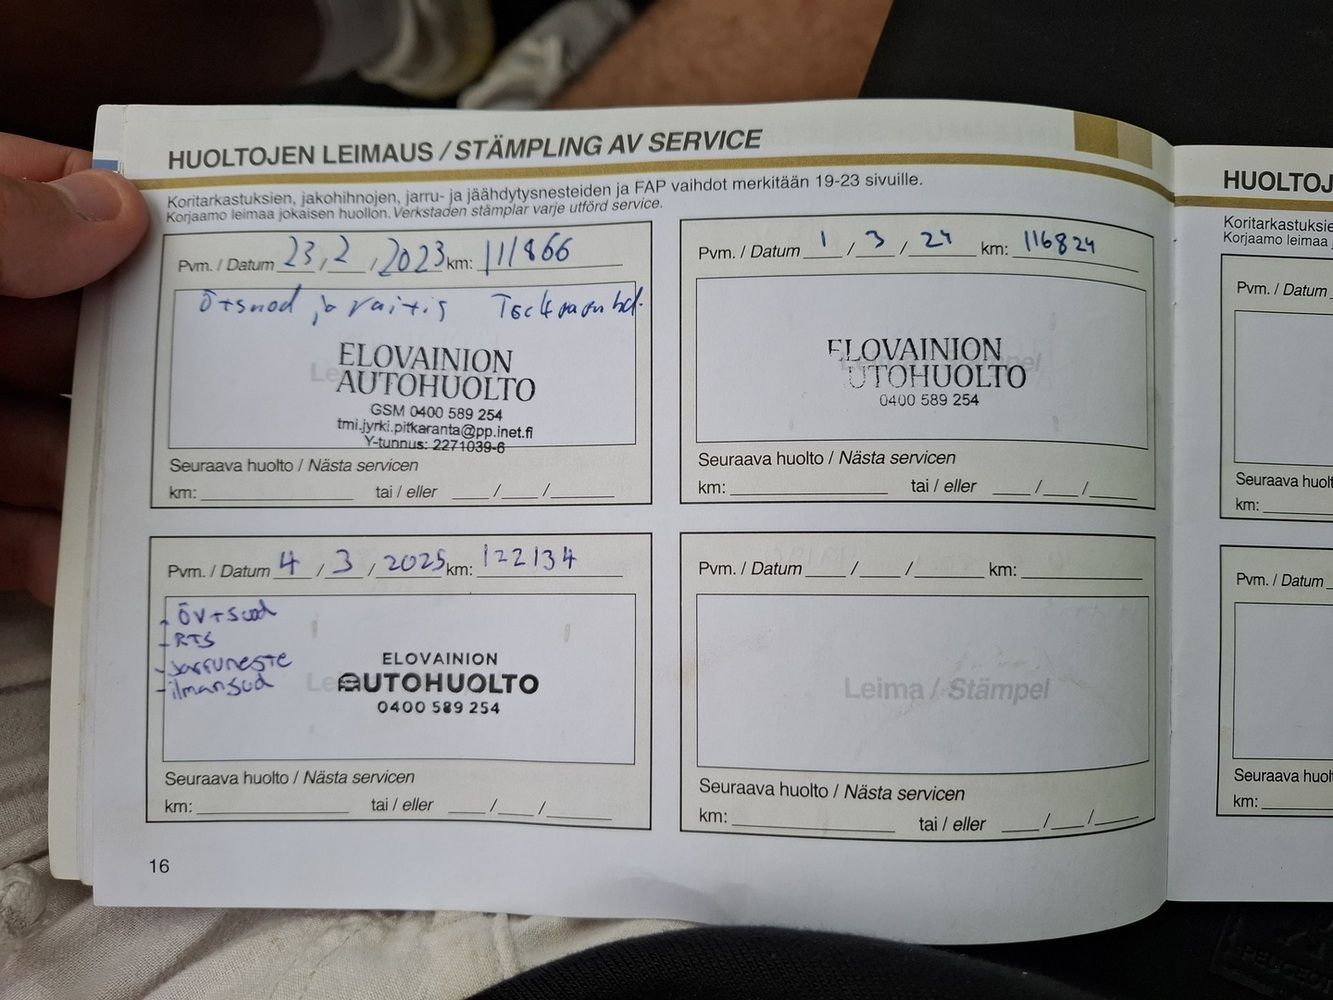 HUOLTOJEN LEIMAUS / STÄMPLING AV SERVICE
Koritarkastuksien, jakohihnojen, jarru- ja jäähdytysnesteiden ja FAP vaihdot merkitään 19-23 sivuille.
Korjaamo leimaa jokaisen huollon. Verkstaden stämplar varje utförd service.
Pvm. / Datum 23,2 / 2023 km: 111866
ja
ELOVAINION
AUTOHUOLTO
GSM 0400 589 254
tmi.jyrki.pitkaranta@pp.inet.fi
Y-tunnus: 2271039-6
Seuraava huolto / Nästa servicen
km: tai / eller / /
Pvm. / Datum 1 / 3 / 24 km: 116824
ELOVAINION
UTOHUOLTO
0400 589 254
Seuraava huolto / Nästa servicen
km: tai / eller / /
Pvm. / Datum 4 / 3 / 2025 km: 122134
- RTS
- Jarruneste
- ilmansud
ELOVAINION
AUTOHUOLTO
0400 589 254
Seuraava huolto / Nästa servicen
km: tai / eller / /
Pvm. / Datum / / km:
Leima / Stämpel
Seuraava huolto / Nästa servicen
km: tai / eller / /
16
HUOLTOJ
Koritarkastuksie
Korjaamo leimaa
Pvm. / Datum
Seuraava huolt
km:
Pvm. / Datum
Seuraava huol
km:
PEUGEO